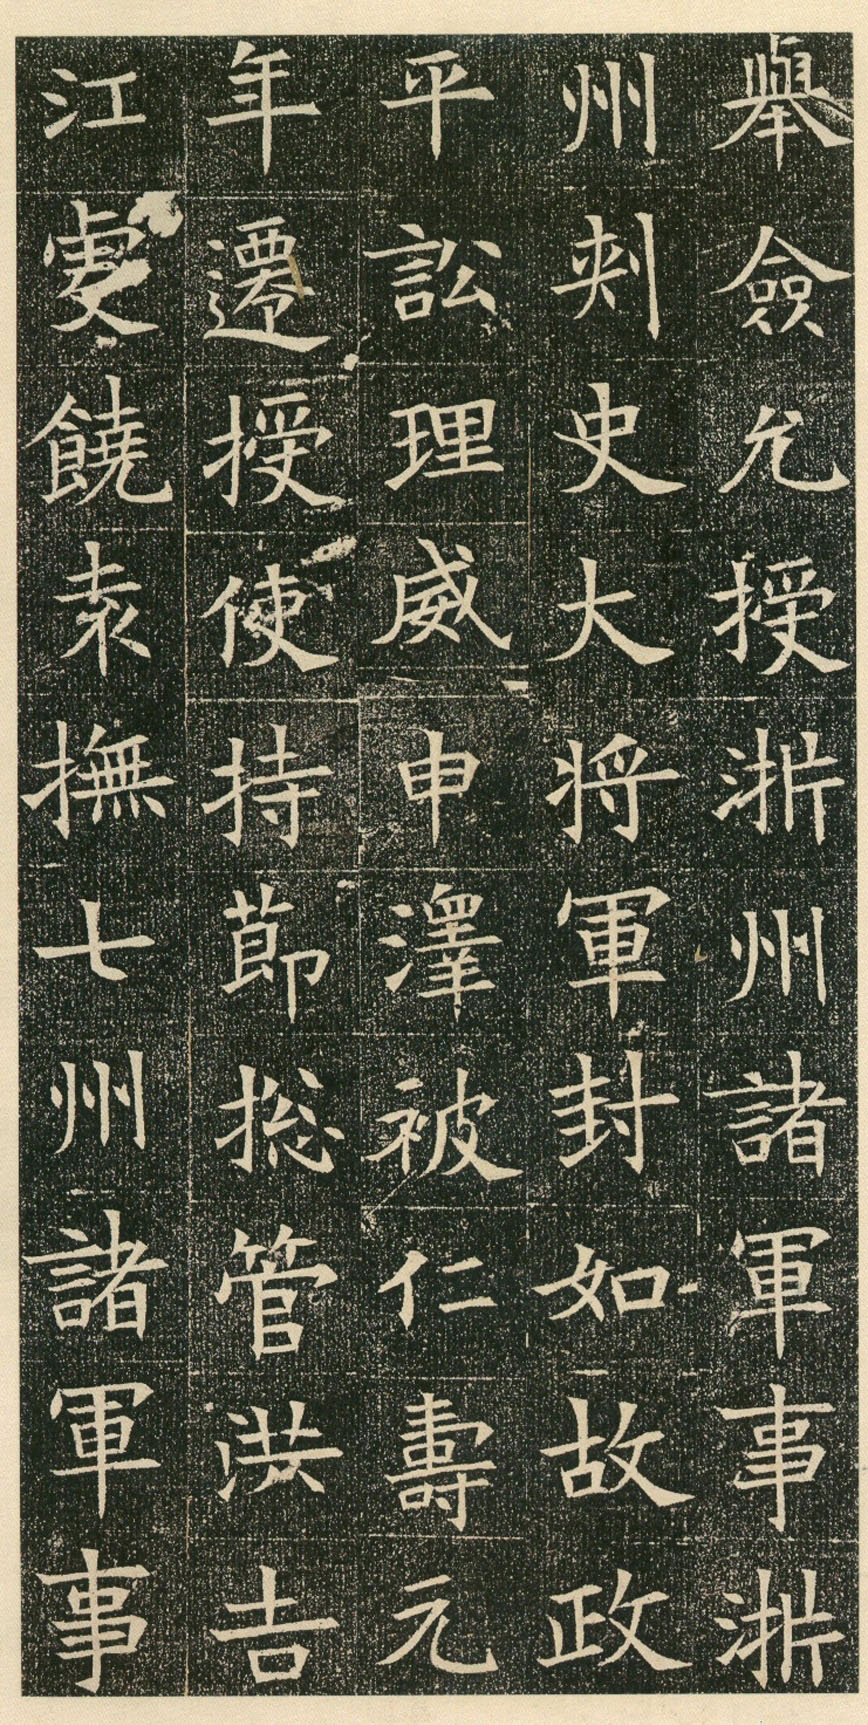 舉僉允授浙州諸軍事浙
州刺史大將軍封如故政
平訟理威申澤被仁壽元
年遷授使持節揔管洪吉
江虔饒袁撫七州諸軍事